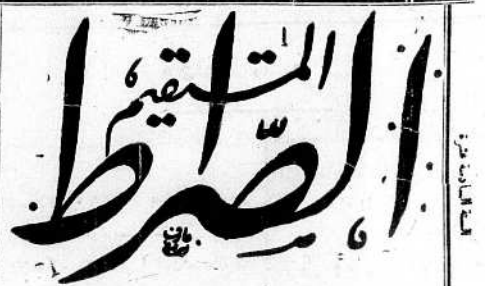 الصّراط
المستقيم
السنة السادسة عشرة